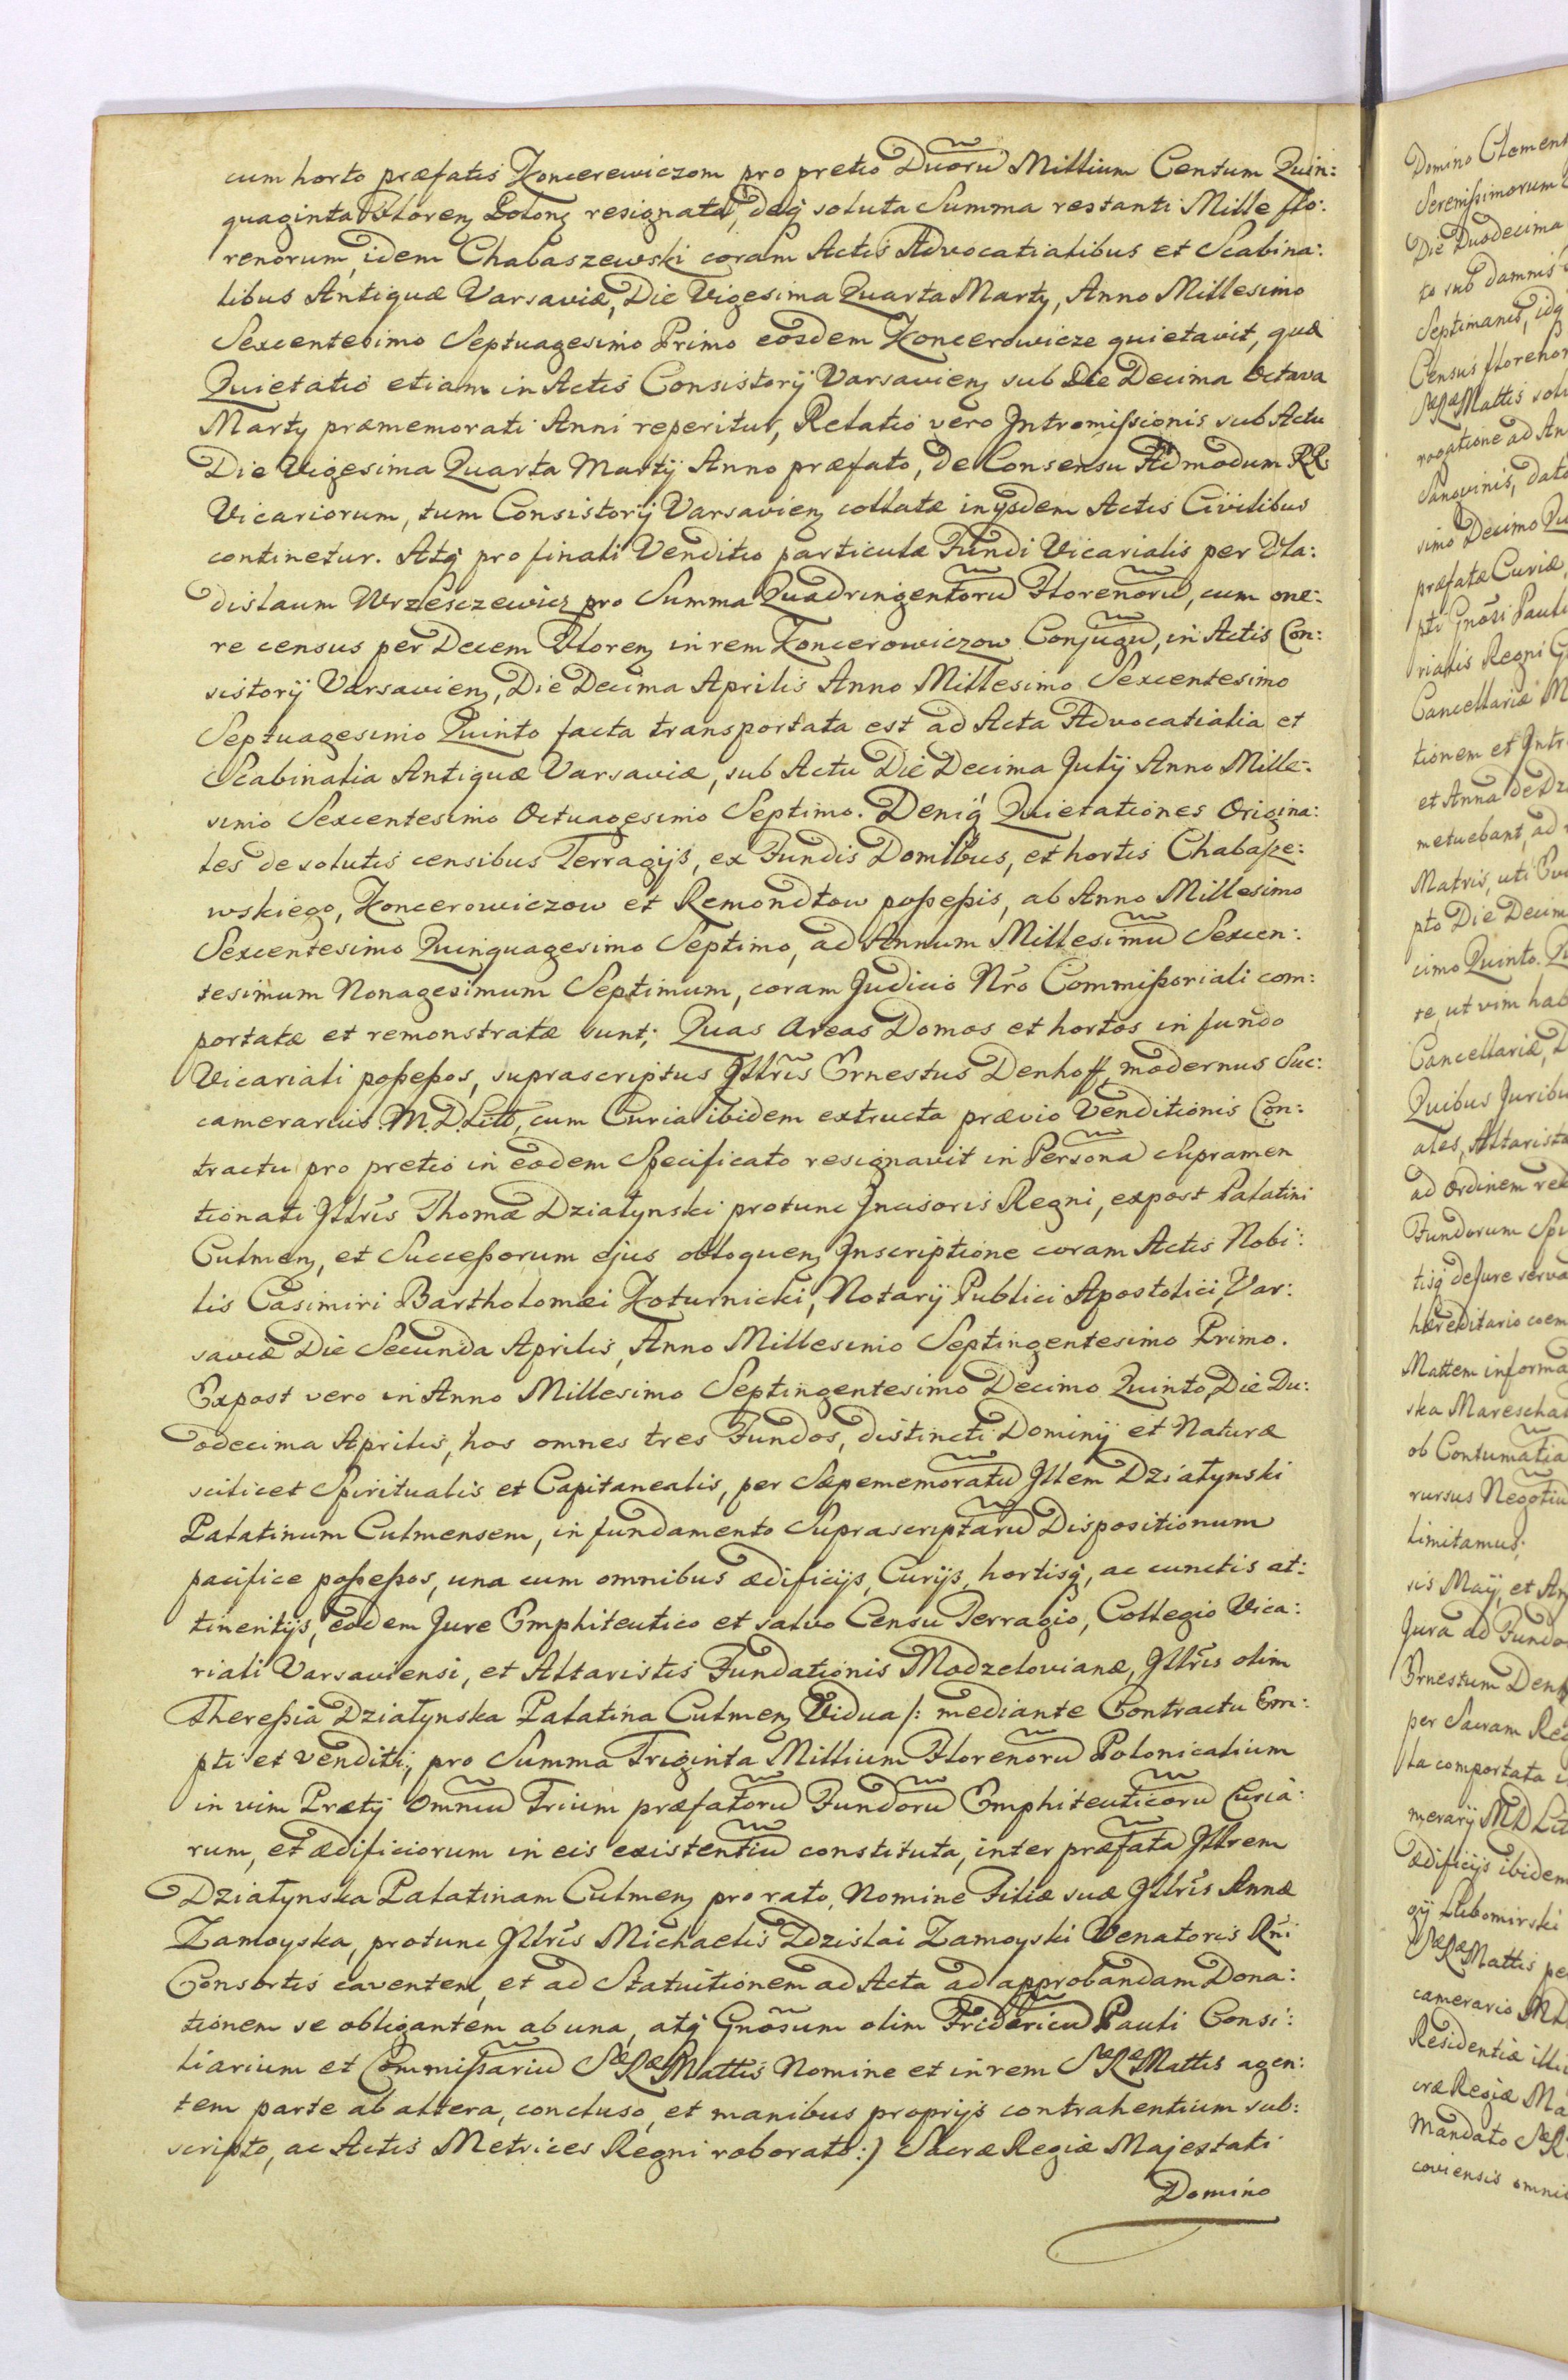 cum horto præfatis Koncerewiczom pro pretio Duorũ Millium Centum Quin:
quaginta Floren̄ Polon̄ resignata, deq̃ soluta Summa restanti Mille flo:
renorum, idem Chabaszewski coram Actis Advocatialibus et Scabina:
libus Antiquæ Varsaviæ, Die Vigesima Quarta Marty, Anno Millesimo
Sexcentesimo Septuagesimo Primo eosdem Koncerowicze quietavit, quæ
Quietatio etiam in Actis Consistorÿ Varsavien̄ sub Die Decima Octava
Marty præmemorati Anni reperitur, Relatio vero Intromissionis sub Actu
Die Vigesima Quarta Martÿ Anno præfato, de Consensu Admodum RR:
Vicariorum, tum Consistorÿ Varsavien̄ collatæ inÿsdem Actis Civilibus
continetur. Atq̃ pro finali Venditio particulæ Fundi Vicarialis per Vla:
dislaum Wrzesczewicz pro Summa Quadringentorũ Florenorũ, cum one:
re census per Decem Floren̄ in rem Koncerowiczow Conjugũ, in Actis Con:
sistorÿ Varsavien̄, Die Decima Aprilis Anno Millesimo Sexcentesimo
Septuagesimo Quinto facta transportata est ad Acta Advocatialia et
Scabinalia Antiquæ Varsaviæ, sub Actu Die Decima Julÿ Anno Mille:
simo Sexcentesimo Octuagesimo Septimo. Deniq̃ Quietationes Origina:
les de solutis censibus Terragÿs, ex Fundis Domibus, et hortis Chabasze:
wskiego, Koncerowiczow et Remondtow possessis, ab Anno Millesimo
Sexcentesimo Quinquagesimo Septimo, ad Annum Millesimũ Sexcen:
tesimum Nonagesimum Septimum, coram Judicio Nr̃o Commissoriali com:
portatæ et remonstratæ sunt; Quas Areas Domos et hortos in fundo
Vicariali possessos, suprascriptus Jllr̃is Ernestus Denhoff modernus Suc:
camerarius M.D.Litt, cum Curia ibidem extructa prævio Venditionis Con:
tractu pro pretio in eodem Specificato resignavit in Persona Supramen
tionati Jllr̃is Thomæ Dziatynski protunc Incisoris Regni, expost Palatini
Culmen̄, et Successorum ejus obloquen̄ Inscriptione coram Actis Nobi:
lis Casimiri Bartholomæi Koturnicki, Notarÿ Publici Apostolici, Var:
saviæ Die Secunda Aprilis, Anno Millesimo Septingentesimo Primo.
Expost vero in Anno Millesimo Septingentesimo Decimo Quinto, Die Du:
odecima Aprilis, hos omnes tres Fundos, distincti Dominÿ et Naturæ
scilicet Spiritualis et Capitanealis, per Sæpememoratũ Jllem Dziatynski
Palatinum Culmensem, in fundamento Suprascriptarũ Dispositionum
pacifice possessos, una cum omnibus ædificÿs, Curÿs, hortisq̃, ac cunctis at:
tinentÿs, eodem Jure Emphiteutico et salvo Censu Terragio, Collegio Vica:
riali Varsaviensi, et Altaristis Fundationis Modzelovianæ, Jllr̃is olim
Theressia Dziatynska Palatina Culmen̄ Vidua /: mediante Contractu Em:
pti et Venditi, pro Summa Triginta Millium Florenorũ Polonicalium
in vim Prætÿ Omniũ Trium præfatorũ Fundorũ Emphiteuticorũ Curia:
rum, et ædificiorum in eis existentiũ constituta, inter præfatã Jllrem
Dziatynska Palatinam Culmen̄ pro rato, Nomine Filiæ suæ Jllr̃is Annæ
Zamoyska, protunc Jllr̃is Michaelis Zdzislai Zamoyski Venatoris Rñi
Consortis caventem, et ad Statuitionem ad Acta ad approbandam Dona:
tionem se obligantem ab una, atq̃ Gnõsum olim Fridericũ Pauli Consi:
liarium et Commissariũ SæRæMattis Nomine et in rem SæRæMattis agen:
tem parte ab altera, concluso, et manibus proprÿs contrahentium sub:
scripto, ac Actis Metrices Regni roborato:/ Sacræ Regiæ Majestati
Domino
Domino Clement
Serenissimorum
Die Duodecima
ta sub damnis
Septimanis, idq̃
Census floreno
SæRæMattis sol
rogatione ad An
Sangvinis, dat
simo Decimo Qu
præfatæ Curiæ
pti Gnõsi Pauli
rialis Regni
Cancellariæ M
tionem et Intr
et Anna de Dz
metuebant, ad
Matris, uti
pto Die Decim
cimo Quinto. Qu
re, ut vim hab
Cancellariæ,
Quibus Juribu
ales, Altarista
ad Ordinem re
Fundorum Spi
tisq̃ de Jure serva
hæreditario coem
Mattem informa
ska Mareschal
ob Contumatia
rursus Negotiũ
limitamus;
sis Maÿ, et An
Jura ad Fundo
Ernestum Denh
per Sacram Re
ta comportata
merarÿ MDLit
ædificÿs ibidem
gÿ Lubomirski
SæRæMattis pe
camerario MD
Residentiæ illi
cræ Regiæ Ma
Mandato SæR
coviensis omni